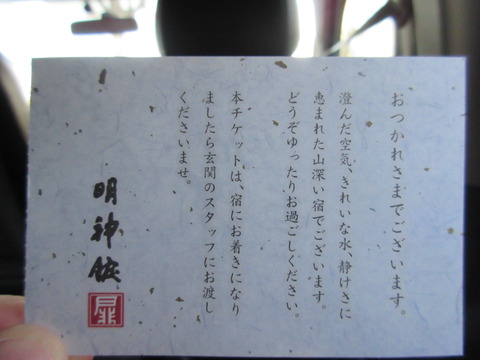 おつかれさまでございます。
澄んだ空気、きれいな水、静けさに
恵まれた山深い宿でございます。
どうぞゆったりお過ごしください。
本チケットは、宿にお着きになり
ましたら玄関のスタッフにお渡し
くださいませ。
明神館